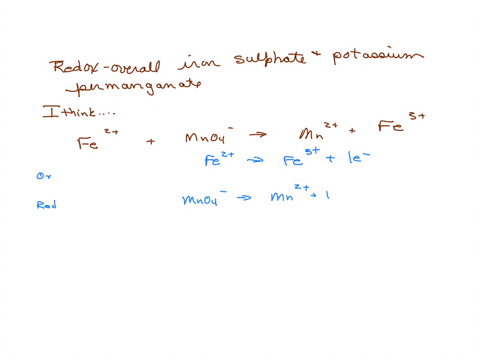 Redox-overall iron sulphate + potassium
permanganate
I think....
Fe²⁺ + MnO₄⁻ → Mn²⁺ + Fe³⁺
Fe²⁺ → Fe³⁺ + 1e⁻
Ox
Red MnO₄⁻ → Mn²⁺ + 1